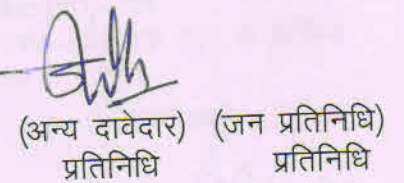 (अन्य दावेदार) (जन प्रतिनिधि)
प्रतिनिधि प्रतिनिधि